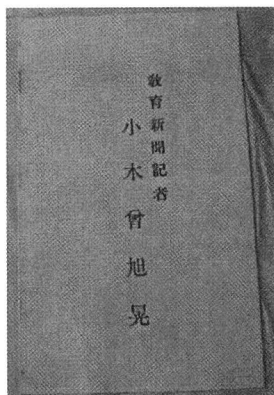 教育新聞記者
小木曾旭晃